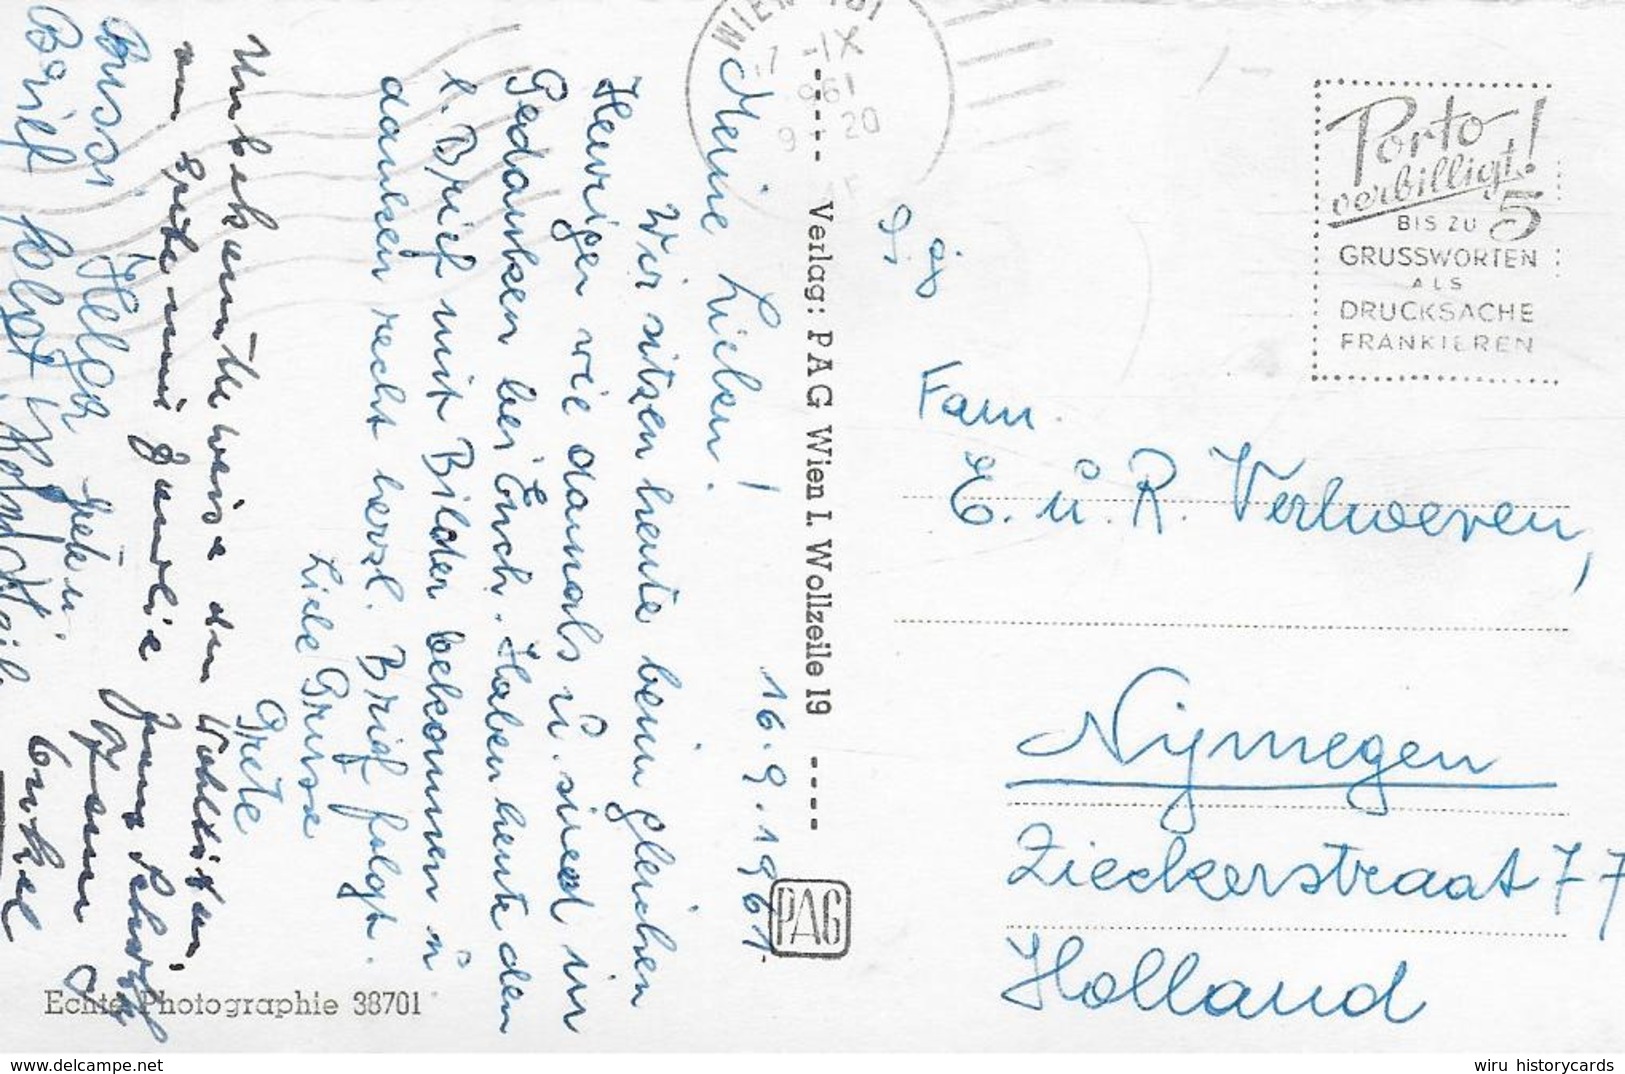 WIEN 101
IX
61
20
Porto
verbilligt!
BIS ZU 5
GRUSSWORTEN
ALS
DRUCKSACHE
FRANKIEREN
16.9.1961
Meine Lieben!
Wir sitzen heute beim gleichen
Heurigen wie damals u. sind in
Gedanken bei Euch. Haben heute den
l. Brief mit Bilder bekommen u.
danken recht herzl. Brief folgt.
Liebe Grüsse
Grete
Unbekannterweise den
am Ende
Bussi Helga
Brief folgt
Verlag: PAG Wien I. Wollzeile 19
PAG
Echte Photographie 38701
Fam.
E. u. R. Verhoeven,
Nijmegen
Zieckerstraat 77
Holland
wiru historycards